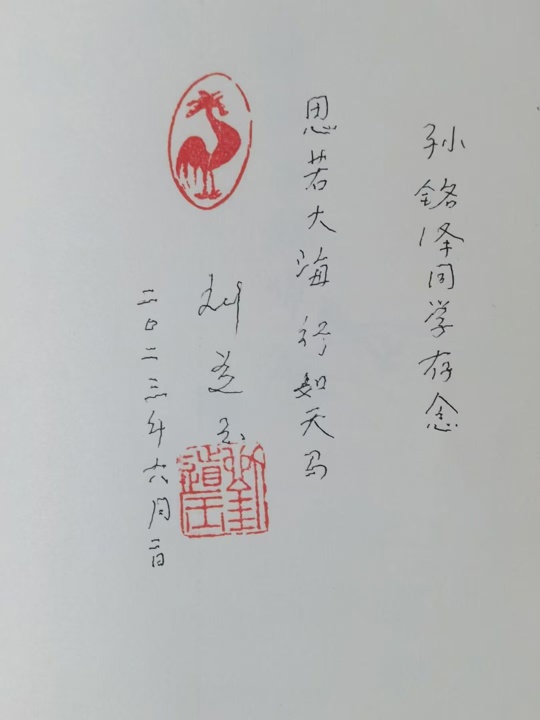 孙铭泽同学存念
思若大海 行如天马
刘道玉
二〇二三年六月二日
劉道玉